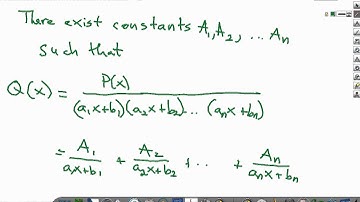 There exist constants A₁,A₂, ... Aₙ
such that
Q(x) = P(x) / (a₁x+b₁)(a₂x+b₂)... (aₙx+bₙ)
= A₁/(a₁x+b₁) + A₂/(a₂x+b₂) + ... + Aₙ/(aₙx+bₙ)